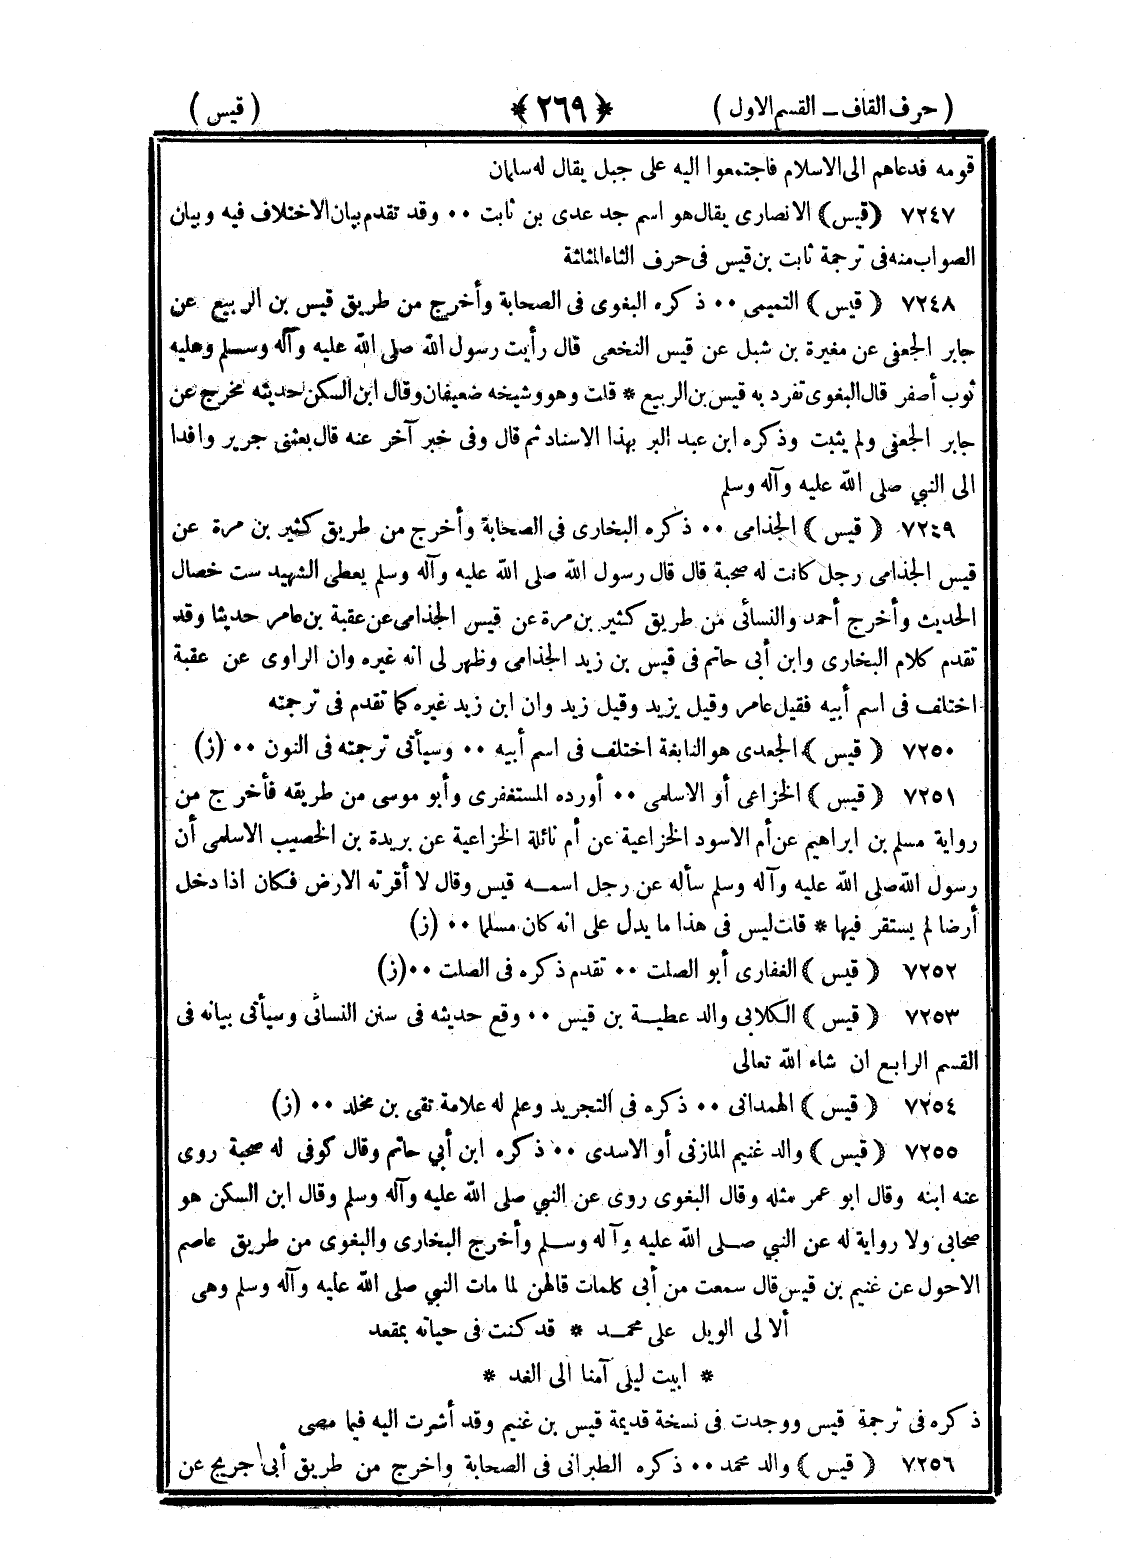 ( حرف القاف ـ القسم الاول ) ﴿ ٢٦٩ ﴾ ( قيس )
قومه فدعاهم الى الاسلام فاجتمعوا اليه على جبل يقال له سلمان
٧٢٤٧ ﴿قيس﴾ الانصارى يقال هو اسم جد عدى بن ثابت ٠٠ وقد تقدم بيان الاختلاف فيه وبيان
الصواب منه فى ترجمة ثابت بن قيس فى حرف الثاء المثلثة
٧٢٤٨ ﴿ قيس ﴾ التميمى ٠٠ ذكره البغوى فى الصحابة وأخرج من طريق قيس بن الربيع عن
جابر الجعفى عن مغيرة بن شبل عن قيس النخعى قال رأيت رسول الله صلى الله عليه وآله وسلم وعليه
ثوب أصفر قال البغوى تفرد به قيس بن الربيع * قلت وهو وشيخه ضعيفان وقال ابن السكن حديثه مخرج عن
جابر الجعفى ولم يثبت وذكره ابن عبد البر بهذا الاسناد ثم قال وفى خبر آخر عنه قال بعثنى جرير وافدا
الى النبي صلى الله عليه وآله وسلم
٧٢٤٩ ﴿ قيس ﴾ الجذامى ٠٠ ذكره البخارى فى الصحابة وأخرج من طريق كثير بن مرة عن
قيس الجذامى رجل كانت له صحبة قال قال رسول الله صلى الله عليه وآله وسلم يعطى الشهيد ست خصال
الحديث وأخرج أحمد والنسائى من طريق كثير بن مرة عن قيس الجذامى عن عقبة بن عامر حديثا وقد
تقدم كلام البخارى وابن أبى حاتم فى قيس بن زيد الجذامى وظهر لى انه غيره وان الراوى عن عقبة
اختلف فى اسم أبيه فقيل عامر وقيل يزيد وقيل زيد وان ابن زيد غيره كما تقدم فى ترجمته
٧٢٥٠ ﴿ قيس ﴾ الجعدى هو النابغة اختلف فى اسم أبيه ٠٠ وسيأتى ترجمته فى النون ٠٠ (ز)
٧٢٥١ ﴿ قيس ﴾ الخزاعى أو الاسلمى ٠٠ أورده المستغفرى وأبو موسى من طريقه فأخرج من
رواية مسلم بن ابراهيم عن أم الاسود الخزاعية عن أم نائلة الخزاعية عن بريدة بن الخصيب الاسلمى أن
رسول الله صلى الله عليه وآله وسلم سأله عن رجل اسمه قيس وقال لا أقرته الارض فكان اذا دخل
أرضا لم يستقر فيها * قلت ليس فى هذا ما يدل على انه كان مسلما ٠٠ (ز)
٧٢٥٢ ﴿ قيس ﴾ الغفارى أبو الصلت ٠٠ تقدم ذكره فى الصلت ٠٠(ز)
٧٢٥٣ ﴿ قيس ﴾ الكلابى والد عطية بن قيس ٠٠ وقع حديثه فى سنن النسائى وسيأتى بيانه فى
القسم الرابع ان شاء الله تعالى
٧٢٥٤ ﴿ قيس ﴾ الهمدانى ٠٠ ذكره فى التجريد وعلم له علامة تقى بن مخلد ٠٠ (ز)
٧٢٥٥ ﴿ قيس ﴾ والد غنيم المازنى أو الاسدى ٠٠ ذكره ابن أبي حاتم وقال كوفى له صحبة روى
عنه ابنه وقال ابو عمر مثله وقال البغوى روى عن النبي صلى الله عليه وآله وسلم وقال ابن السكن هو
صحابى ولا رواية له عن النبي صلى الله عليه وآله وسلم وأخرج البخارى والبغوى من طريق عاصم
الاحول عن غنيم بن قيس قال سمعت من أبى كلمات قالهن لما مات النبي صلى الله عليه وآله وسلم وهى
ألا لى الويل على محمد * قد كنت فى حياته بمقعد
* ابيت ليلى آمنا الى الغد *
ذكره فى ترجمة قيس ووجدت فى نسخة قديمة قيس بن غنيم وقد أشرت اليه فيما مصى
٧٢٥٦ ﴿ قيس ﴾ والد محمد ٠٠ ذكره الطبرانى فى الصحابة واخرج من طريق أبى جريج عن